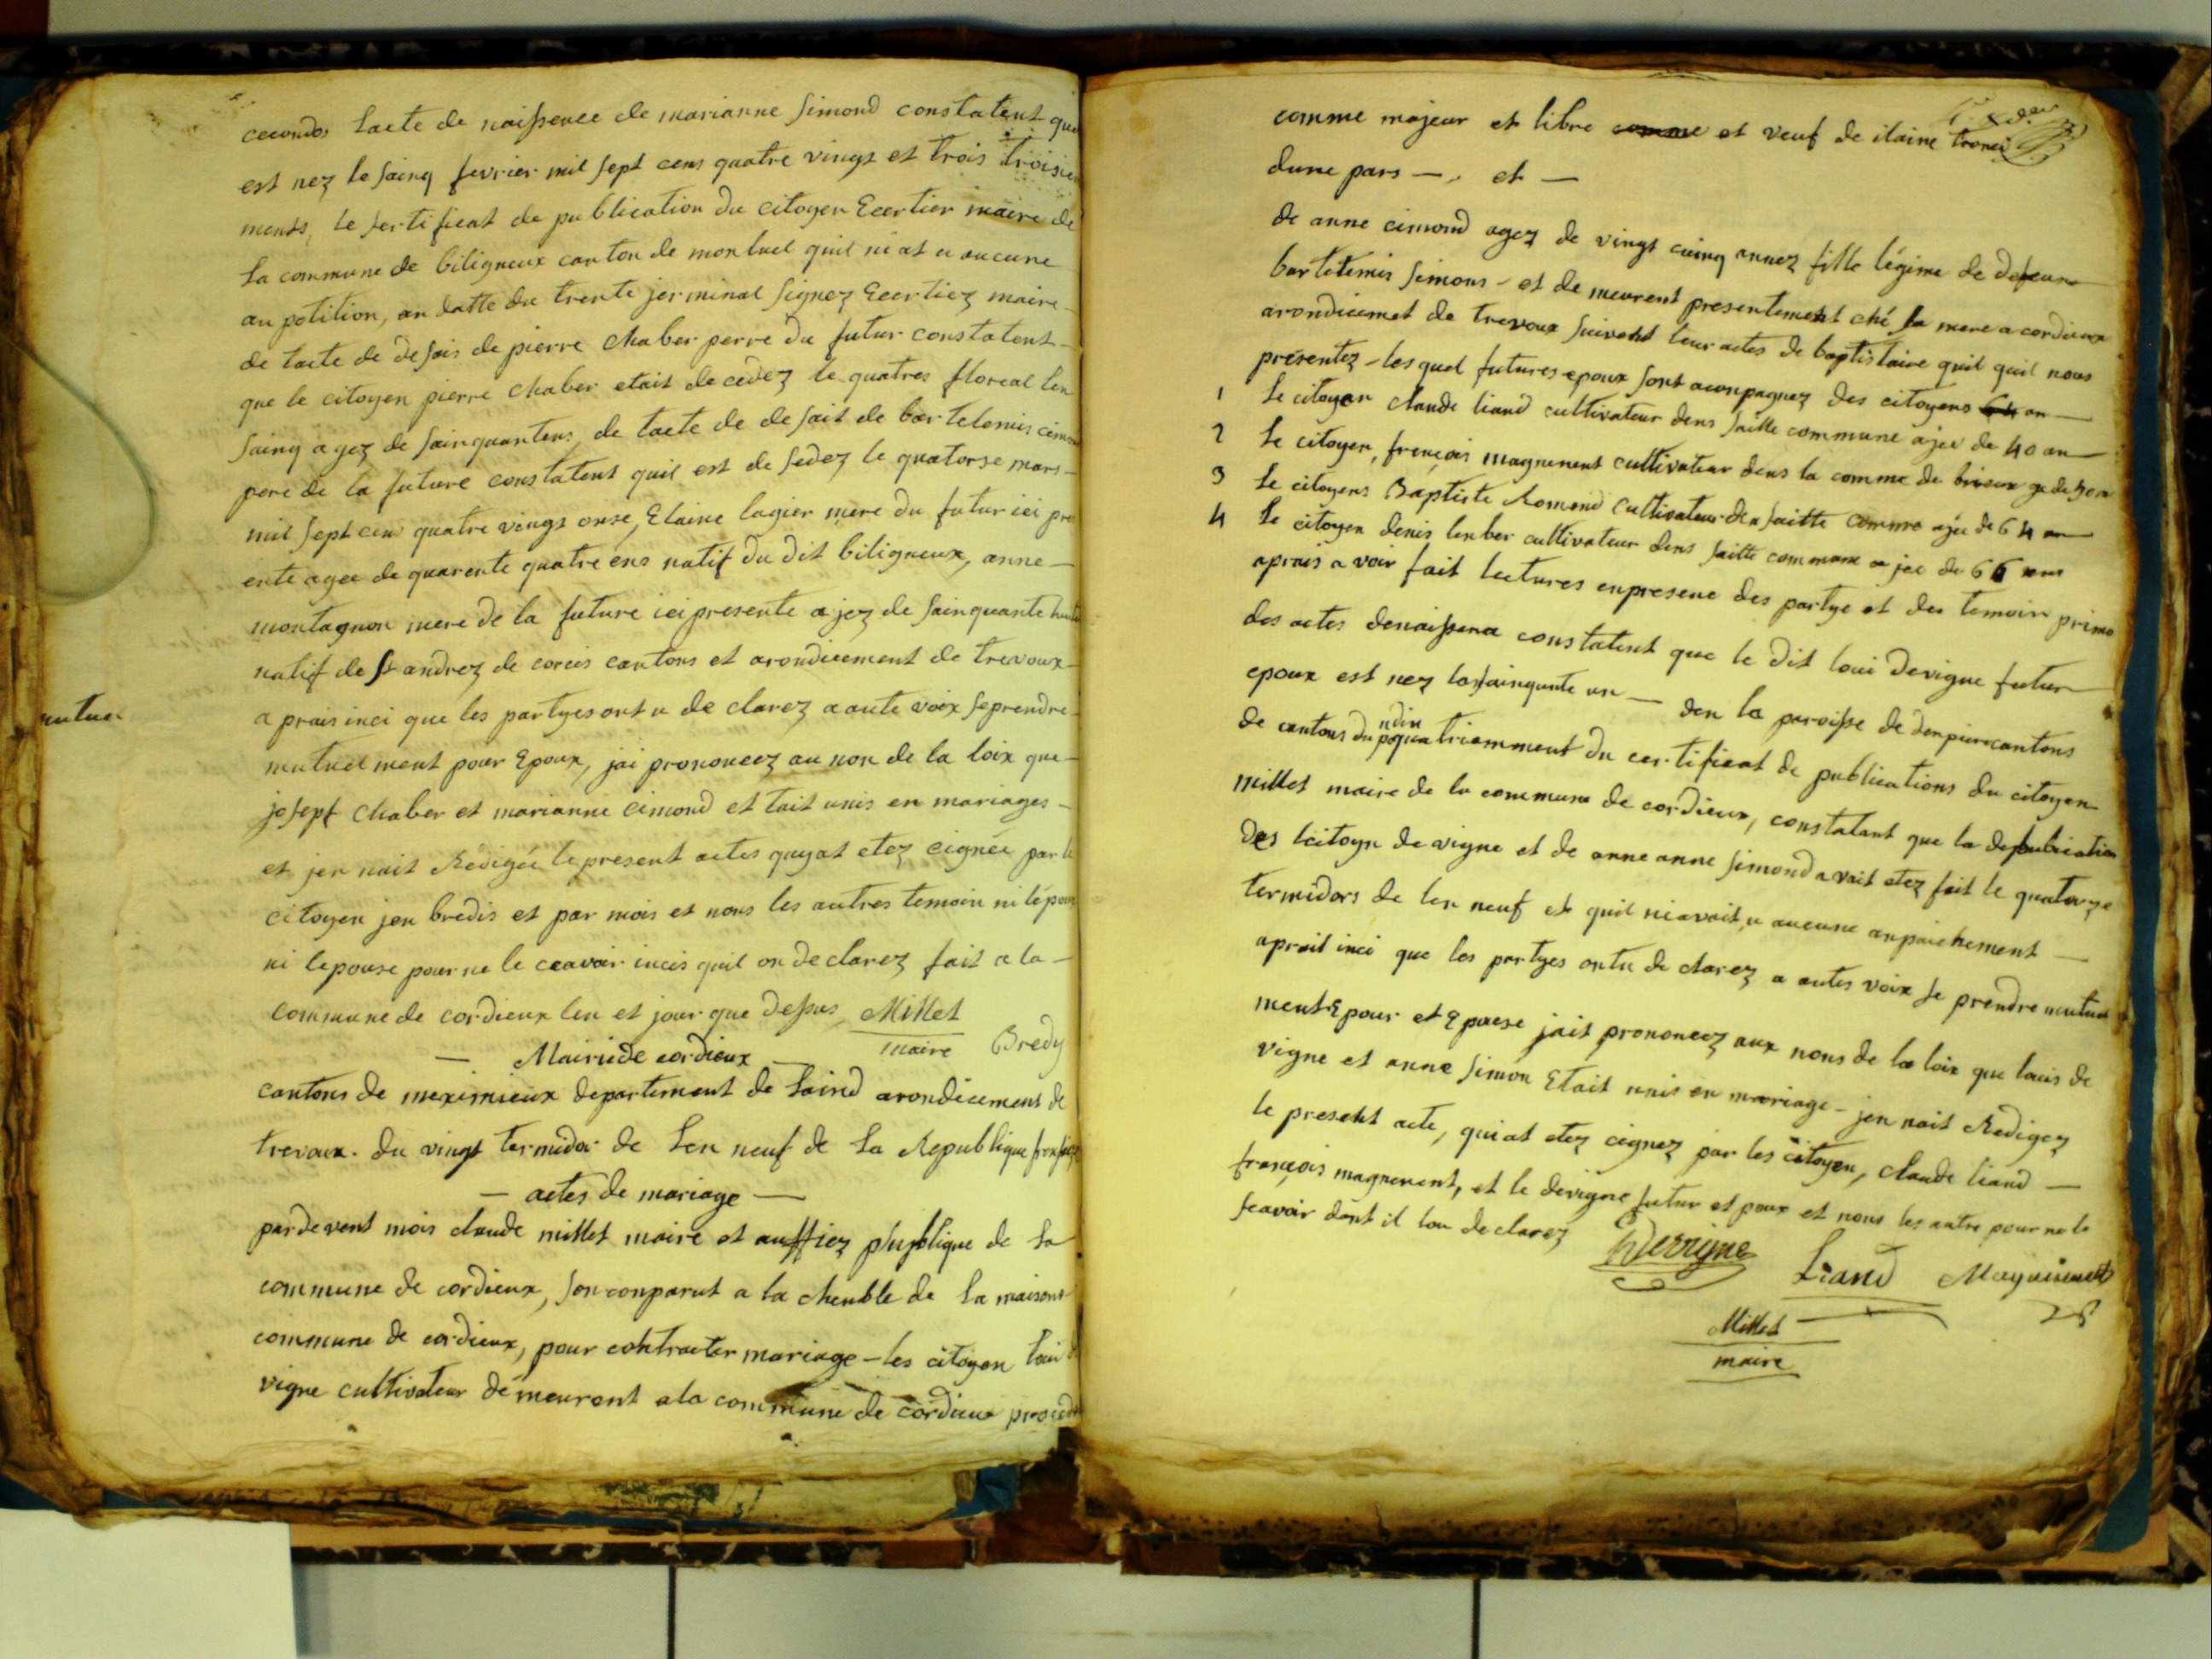 cecondo lacte de naissence de marianne simond constatent que
est nez le sainq fevrier mil sept cens quatre vingt et trois troisie
ments, le sertificat de publication du citoyen Ecertier maire de
la commune de biligneux canton de monluel quil ni at u aucune
au potition, an datte du trente jerminal signez Ecertiez maire
de lacte de desais de pierre chaber perre du futur constatent
que le citoyen pierre chaber etait decedez le quatres floreal len
sainq agez de sainquantens de lacte de desait de bartelemis cimon
pere de la future constatent quil est desedez le quatorse mars
mil sept cen quatre vingt onse, Elaine lagier mere du futur ici pre
ente agee de quarente quatre ens natif du dit biligneux, anne
montagnon mere de la future ici presente ajez de sainquante huit
natif de St andrez de corcis cantons et arondicement de trevoux
a prais inci que les partyes ont u de clarez a aute voix se prendre
mutuelment pour Epoux, jai prononcez au non de la loix que
josept chaber et marianne cimond et tait unis en mariages
et jen nait Redigée le present actes quyat etez cignée par le
citoyen jen bredis et par mois et nous les autres temoin ni lépoux
ni lepouse pour ne le ceavoir incis quil on declarez fait a la
commune de cordieux len et jour que dessus Millet
maire Bredy
mutuel
Mairie de cordieux
cantons de meximieux departement de laind arondicement de
trevoux. du vingt termidor de len neuf de la Republique fransaise
actes de mariage
pardevent mois claude millet maire et auffiez publique de la
commune de cordieux, son conparut a la chenble de la maisons
commune de cordieux, pour contracter mariage - les citoyen loui de
vigne cultivateur demeurant a la commune de cordieux procede
comme majeur et libre comme et veuf de elaine
dune pars - et -
de anne cimond agez de vingt cuinq annez fille légime de defeun
bartelemis simons - et demeurent presentement ché sa mere a cordieux
arondicemet de trevoux suivent leur actes de baptistaire quil quil nous
présentez - lesquel futures epoux sont aconpagnez des citoyens
1 Le citoyen claude liand cultivateur dens saitte commune ajee de 40 an
2 Le citoyen, françois magnenent cultivateur dens la comme de
3 Le citoyens Baptiste Romend cultivateur den saitte comme ajee de 64 an
4 Le citoyen denis lember cultivateur dens saitte commune a jee de 66 ans
aprais a voir fait lectures en presene des partye et des temoin primo
des actes denaissena constatent que le dit loui devigne futur
epoux est nez lan sainquante un - den la paroisse de donpiere cantons
de cantons du triemment du certificat de publications du citoyen
millet maire de la commune de cordieux, constatant que la depublication
des lcitoyn de vigne et de anne anne simond avait etez fait le quatorze
termidors de len neuf et quil niavait u aucune anpaichement
aprait inci que les partyes ontu de clarez a autes voix se prendre mutuel
ment Epour et Epouse jait prononcez aux nons de la loix que louis de
vigne et anne simon Etait unis en mariage - jen nait Redigez
le present acte, qui at etez cignez par les citoyen, claude liand
françois magnenent, et le devigne futur et poux et nous les autre pour ne le
scavoir dont il lon declarez
Derrigne Liand Magninent
Millet
maire